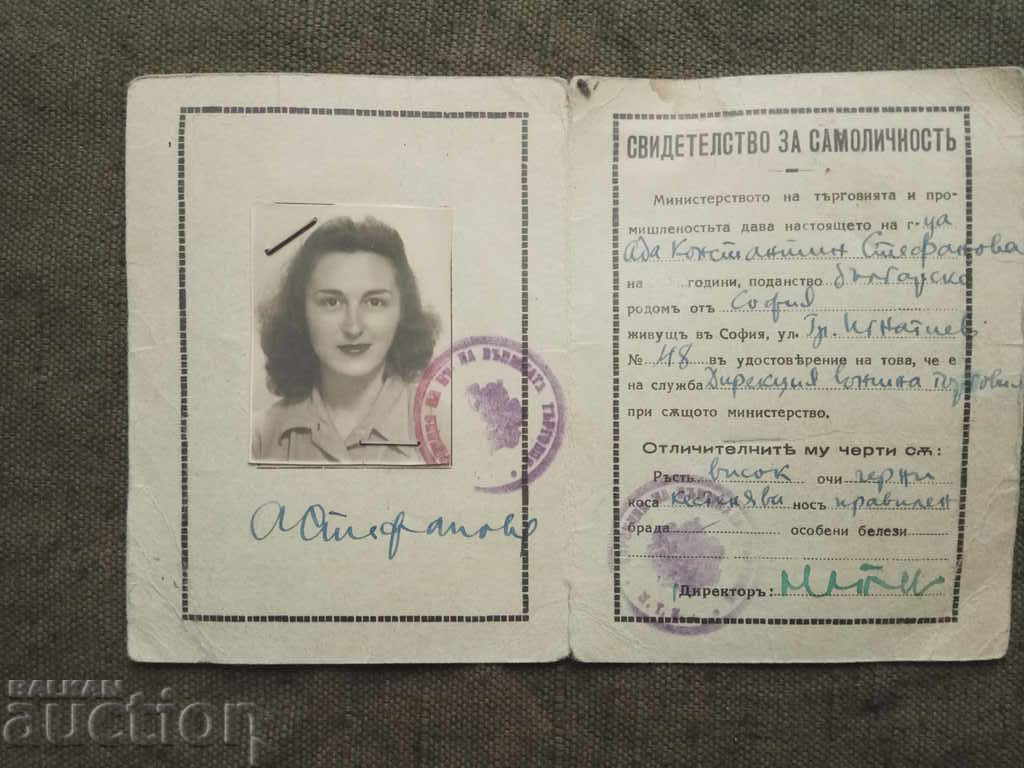 А Стефанова
BALKAN
auction
СВИДЕТЕЛСТВО ЗА САМОЛИЧНОСТЬ
Министерството на търговията и про-
мишлеността дава настоящето на г-ца
Ада Константин Стефанова
на години, поданство българско
родомъ отъ София
живущъ въ София, ул. Гр. Игнатиевъ
№ 48 въ удостовѣрение на това, че е
на служба Дирекция външна търговия
при сѫщото министерство.
Отличителнитѣ му черти сѫ:
Ръстъ висок очи черни
коса кестеняви носъ правилен
брада особени белези
Директоръ: